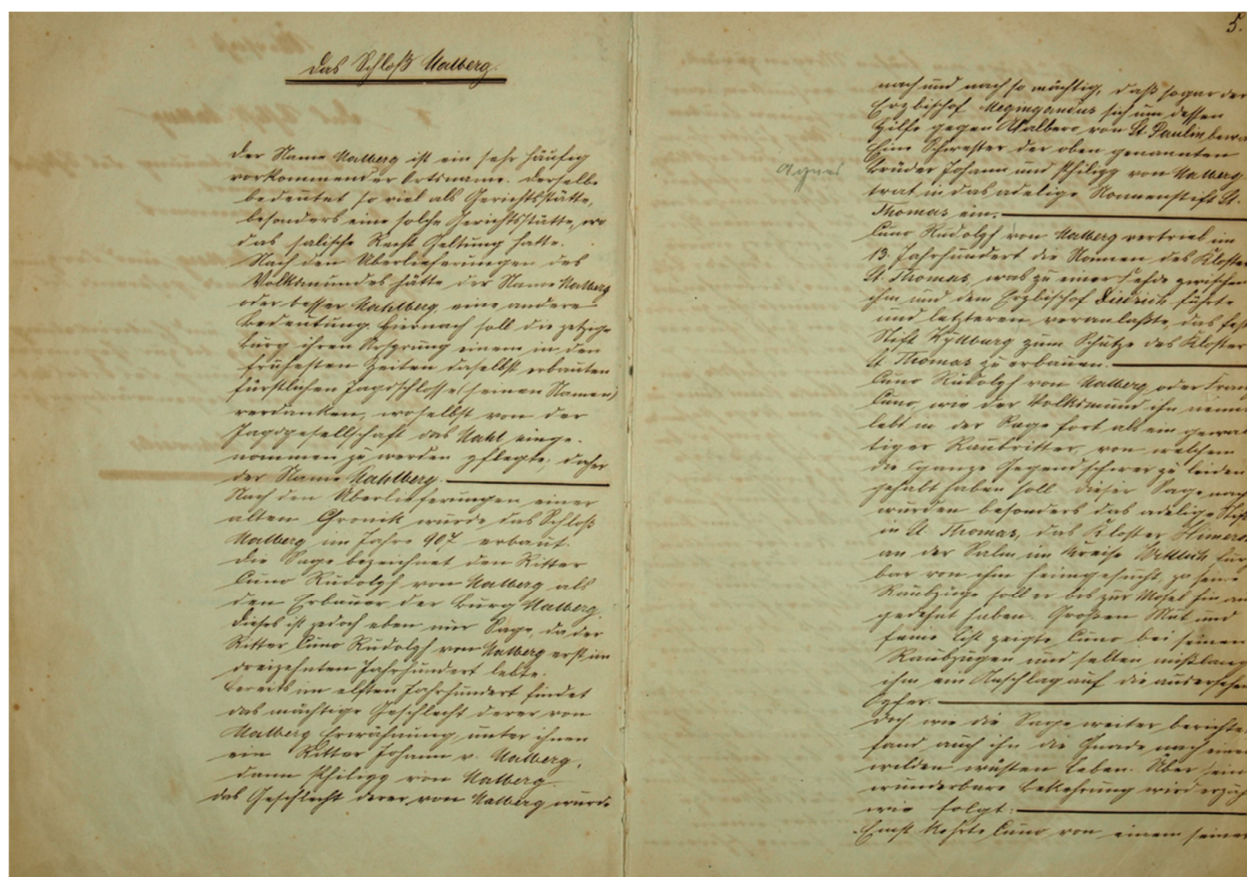 Das Schloß Malberg.
Der Name Malberg ist ein sehr häufig
vorkommender Ortsname. Derselbe
bedeutet so viel als Gerichtsstätte,
besonders eine solche Gerichtsstätte, wo
das salische Recht Geltung hatte.
Nach den Überlieferungen des
Volksmundes hätte der Name Malberg
oder besser Mahlberg eine andere
Bedeutung. Hiernach soll die jetzige
Burg ihren Ursprung einem in den
frühesten Zeiten daselbst erbauten
fürstlichen Jagdschlosse (seinen Namen)
verdanken, woselbst von der
Jagdgesellschaft das Mahl einge-
nommen zu werden pflegte, daher
der Name Mahlberg.
Nach den Überlieferungen einer
alten Chronik wurde das Schloß
Malberg im Jahre 907 erbaut.
Die Sage bezeichnet den Ritter
Cuno Rudolph von Malberg als
den Erbauer der Burg Malberg.
Dieses ist jedoch eben nur Sage, da der
Ritter Cuno Rudolph von Malberg erst im
dreizehnten Jahrhundert lebte.
Bereits im elften Jahrhundert findet
das mächtige Geschlecht derer von
Malberg Erwähnung unter ihnen
ein Ritter Johann v. Malberg,
dann Philipp von Malberg.
Das Geschlecht derer von Malberg wurde
5.
nach und nach so mächtig, daß sogar der
Erzbischof Megingandus sich um dessen
Hilfe gegen Adalbero von St. Paulin bewa
Eine Schwester der oben genannten
Agnes
Brüder Johann und Philipp von Malberg
trat in das adelige Nonnenstift St.
Thomas ein.
Cuno Rudolph von Malberg vertrieb im
13. Jahrhundert die Nonnen des Kloster
St. Thomas, was zu einer Fehde zwischen
ihm und dem Erzbischof Diedrich führte
und letzteren veranlaßte, das feste
Stift Kyllburg zum Schutze des Kloster
St. Thomas zu erbauen.
Cuno Rudolph von Malberg oder
Cuno, wie der Volksmund ihn nennt
lebt in der Sage fort als ein gewal
tiger Raubritter, von welchem
die ganze Gegend schwer zu leiden
gehabt haben soll. Dieser Sage nach
wurden besonders das adelige Stift
in St. Thomas, das Kloster Himero
an der Salm im Kreise Wittlich fur
bar von ihm heimgesucht, ja seine
Raubzüge soll er bis zur Mosel hin aus
gedehnt haben. Großen Mut und
List zeigte Cuno bei seinen
Raubzügen und selten mißlang
ihm ein Anschlag auf die ausersehen
Opfer.
Doch wie die Sage weiter berichtet
fand auch ihn die Gnade nach einem
wilden wüsten Leben. Über seine
wunderbare Bekehrung wird erzäh
wie folgt:
Einst kehrte Cuno von einem seiner